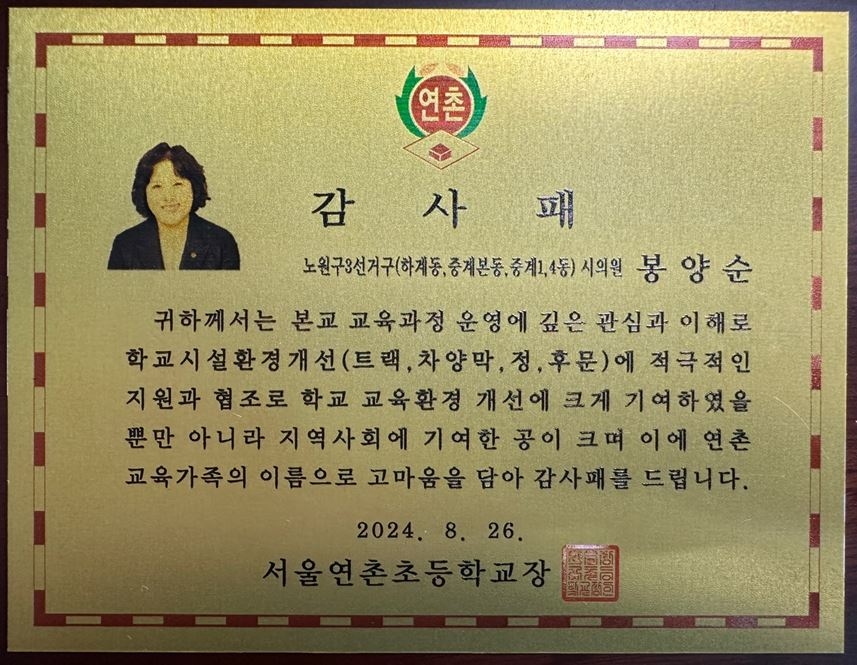 연촌
감 사 패
노원구3선거구(하계동,중계본동,중계1,4동) 시의원 봉양순
귀하께서는 본교 교육과정 운영에 깊은 관심과 이해로
학교시설환경개선(트랙,차양막,정,후문)에 적극적인
지원과 협조로 학교 교육환경 개선에 크게 기여하였을
뿐만 아니라 지역사회에 기여한 공이 크며 이에 연촌
교육가족의 이름으로 고마움을 담아 감사패를 드립니다.
2024. 8. 26.
서울연촌초등학교장